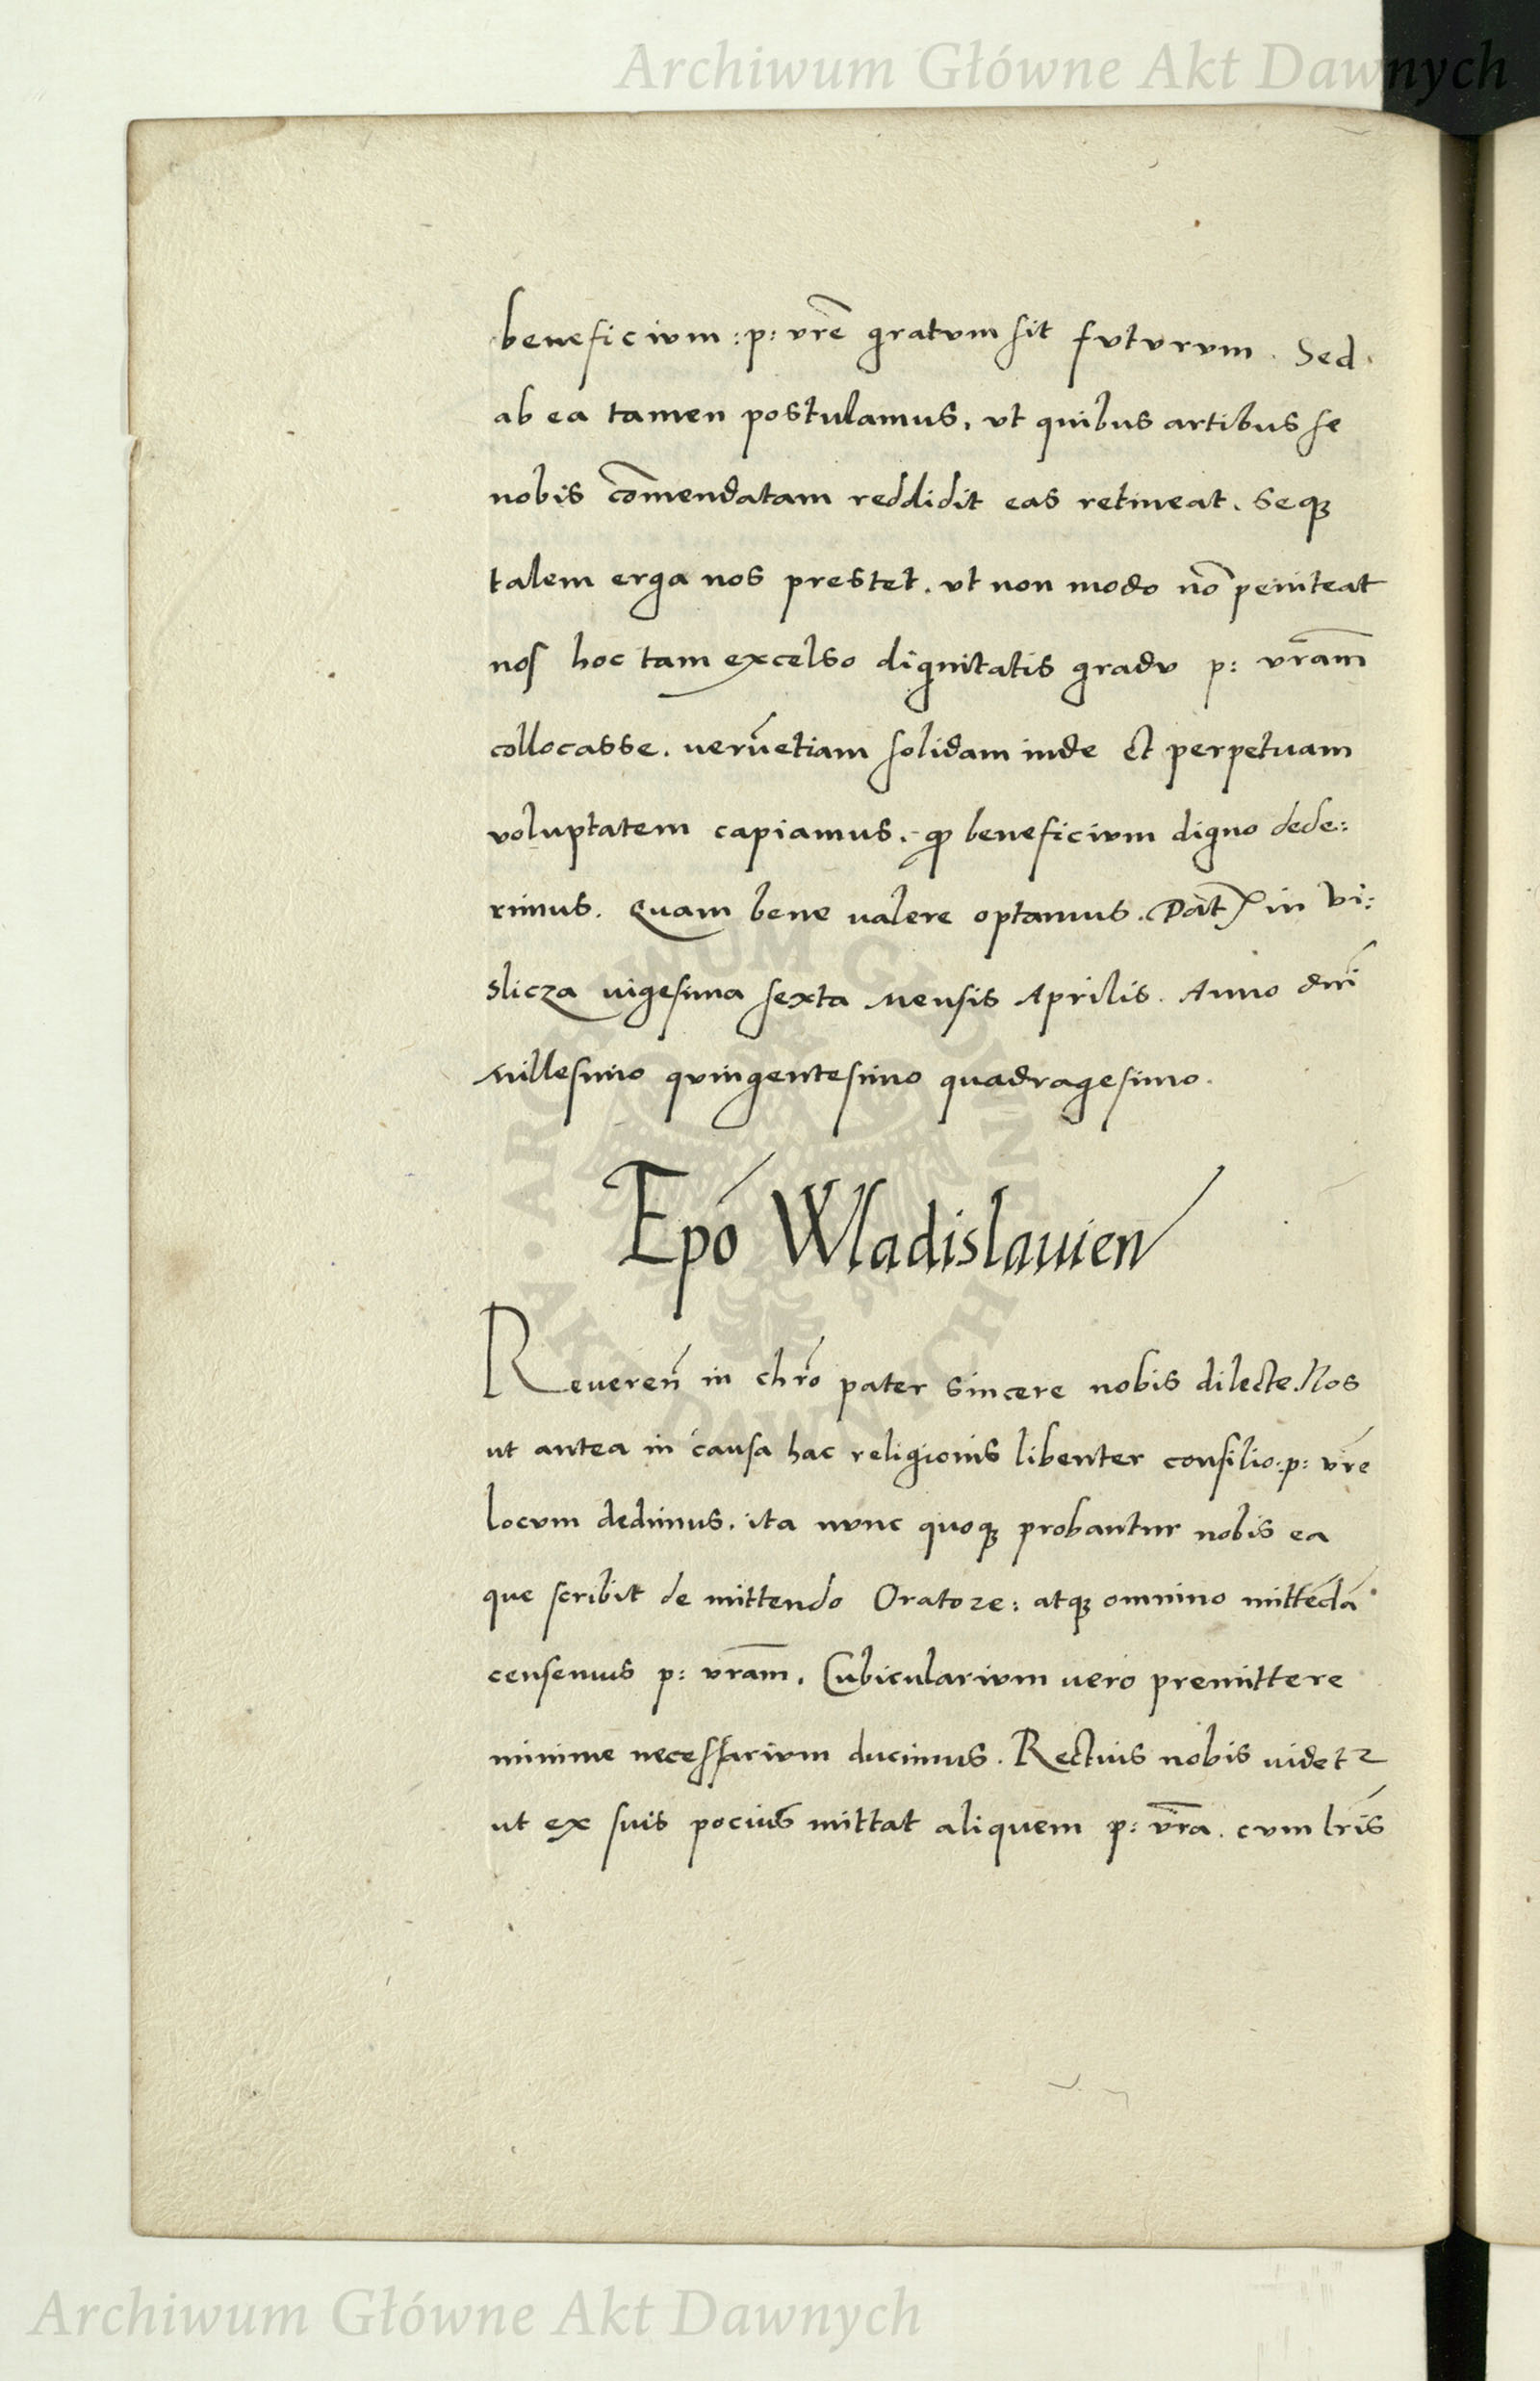 Archiwum Główne Akt Dawnych
beneficivm :p: vrē gratvm sit fvtvrvm. Sed
ab ea tamen postulamus, vt quibus artibus se
nobis cōmendatam reddidit eas retineat. seqꝫ
talem erga nos prestet. vt non modo nō peniteat
nos hoc tam excelso dignitatis gradv p: vrām
collocasse. uerūetiam solidam inde et perpetuam
voluptatem capiamus. qꝫ beneficivm digno dede:
rimus. Quam bene valere optamus. Dat̄ in Vi:
slicza uigesima sexta Mensis Aprilis. Anno dn̄i
Millesimo qvingentesimo quadragesimo.
Epō Wladislauien
Reueren̄ in chr̄o pater sincere nobis dilecte. Nos
ut antea in causa hac religionis libenter consilio :p: vr̄e
locvm dedimus. ita nvnc quoqꝫ probantur nobis ea
que scribit de mittendo Oratore: atqꝫ omnino mittēdā
censemus p: vrām. Cubicularivm uero premittere
minime necessarivm ducimus. Rectius nobis uidetꝛ
ut ex suis pocius mittat aliquem p: vr̄a. cvm lr̄is
ARCHIWUM GŁÓWNE AKT DAWNYCH
Archiwum Główne Akt Dawnych